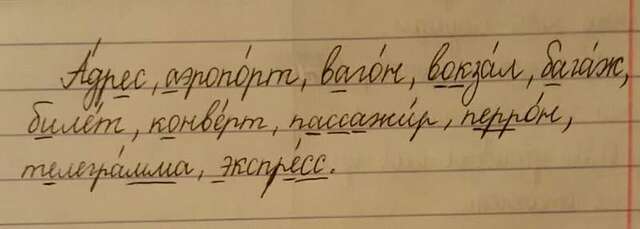 А́дрес, аэропо́рт, ваго́н, вокза́л, бага́ж,
биле́т, конве́рт, пассажи́р, перро́н,
телегра́мма, экспре́сс.